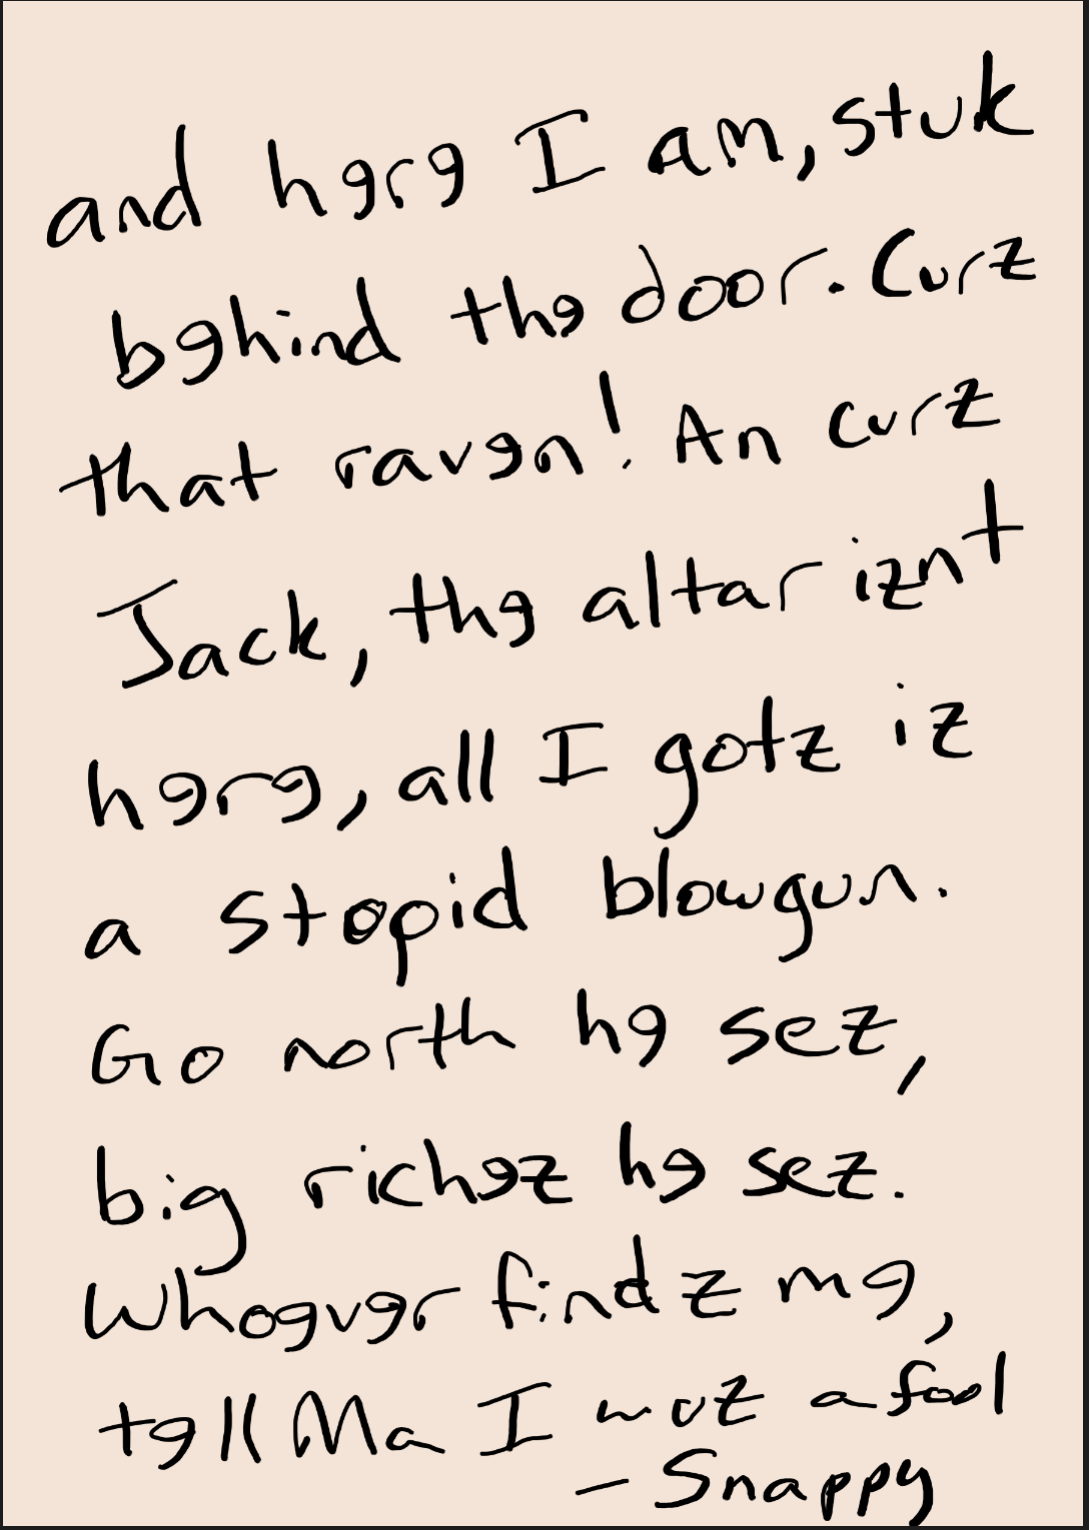 and here I am, stuk
behind the door. Curz
that raven! An curz
Jack, the altar iznt
here, all I gotz iz
a stopid blowgun.
Go north he sez,
big richez he sez.
Whoever findz me,
tell Ma I wuz a fool
- Snappy